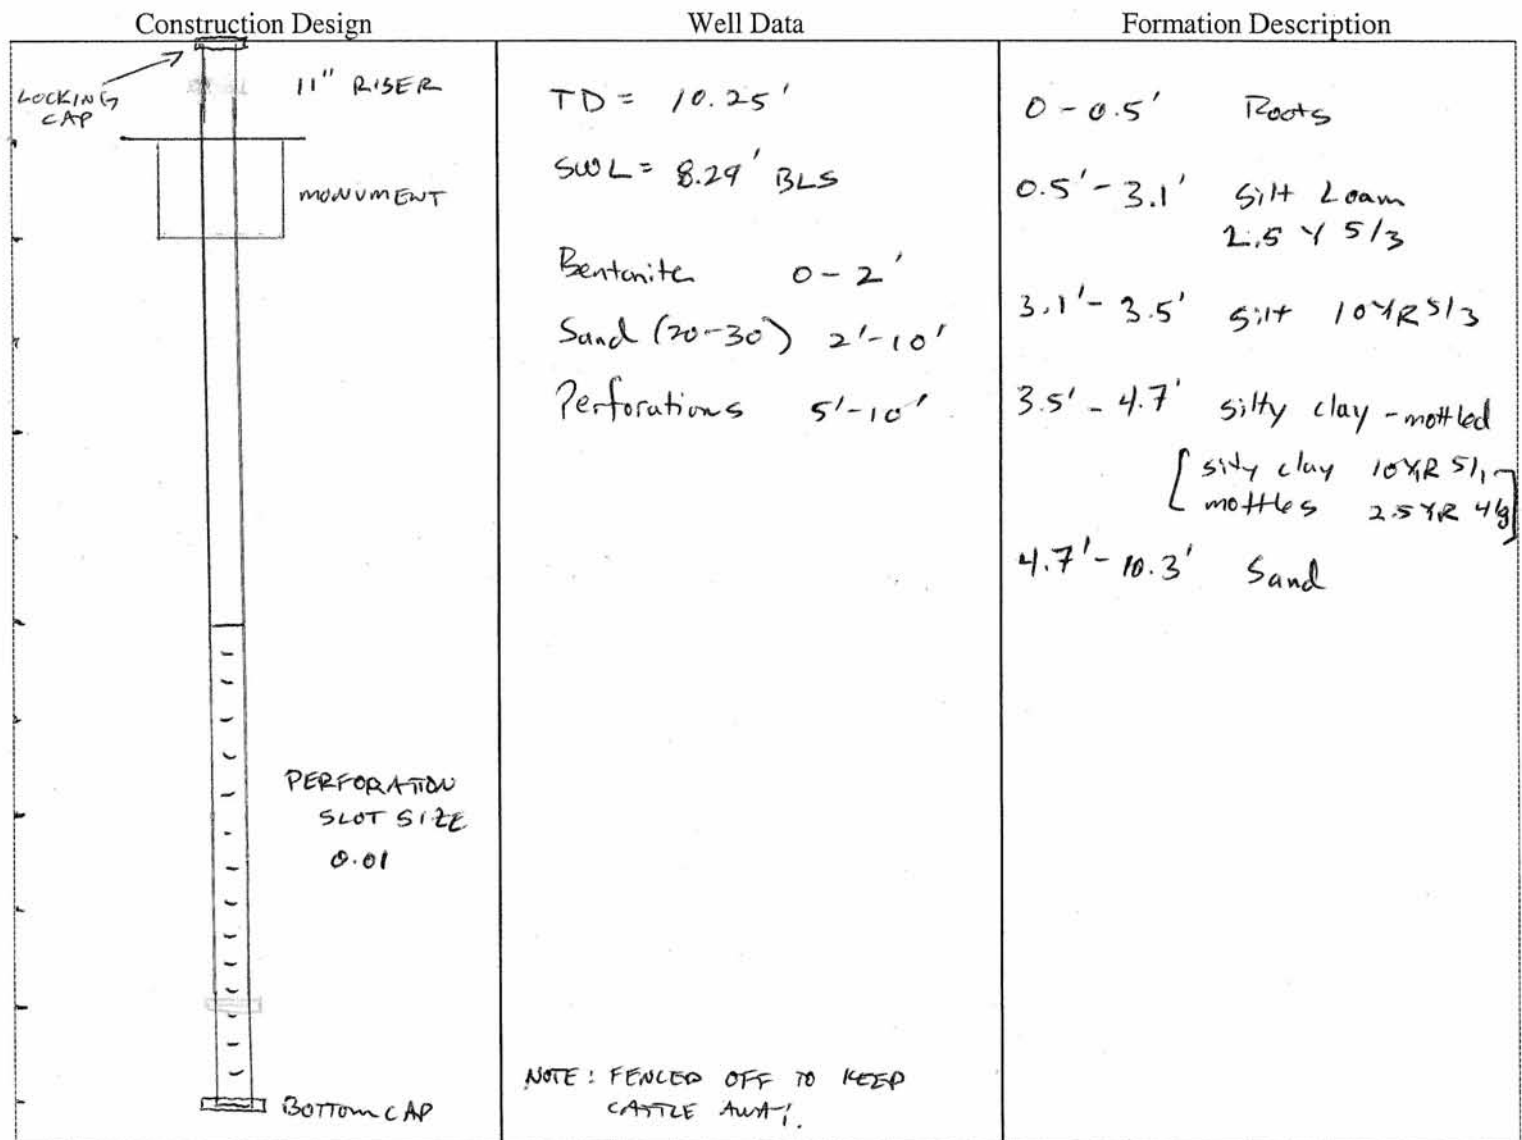 Construction Design
LOCKING
CAP
11" RISER
MONUMENT
PERFORATION
SLOT SIZE
0.01
BOTTOM CAP
Well Data
TD = 10.25'
SWL = 8.29' BLS
Bentonite 0 - 2'
Sand (20-30) 2'-10'
Perforations 5'-10'
NOTE: FENCED OFF TO KEEP
CATTLE AWAY.
Formation Description
0 - 0.5' Roots
0.5' - 3.1' Silt Loam
2.5 Y 5/3
3.1' - 3.5' Silt 10YR 5/3
3.5' - 4.7' silty clay - mottled
[ silty clay 10YR 5/1
mottles 2.5YR ]
4.7' - 10.3' Sand